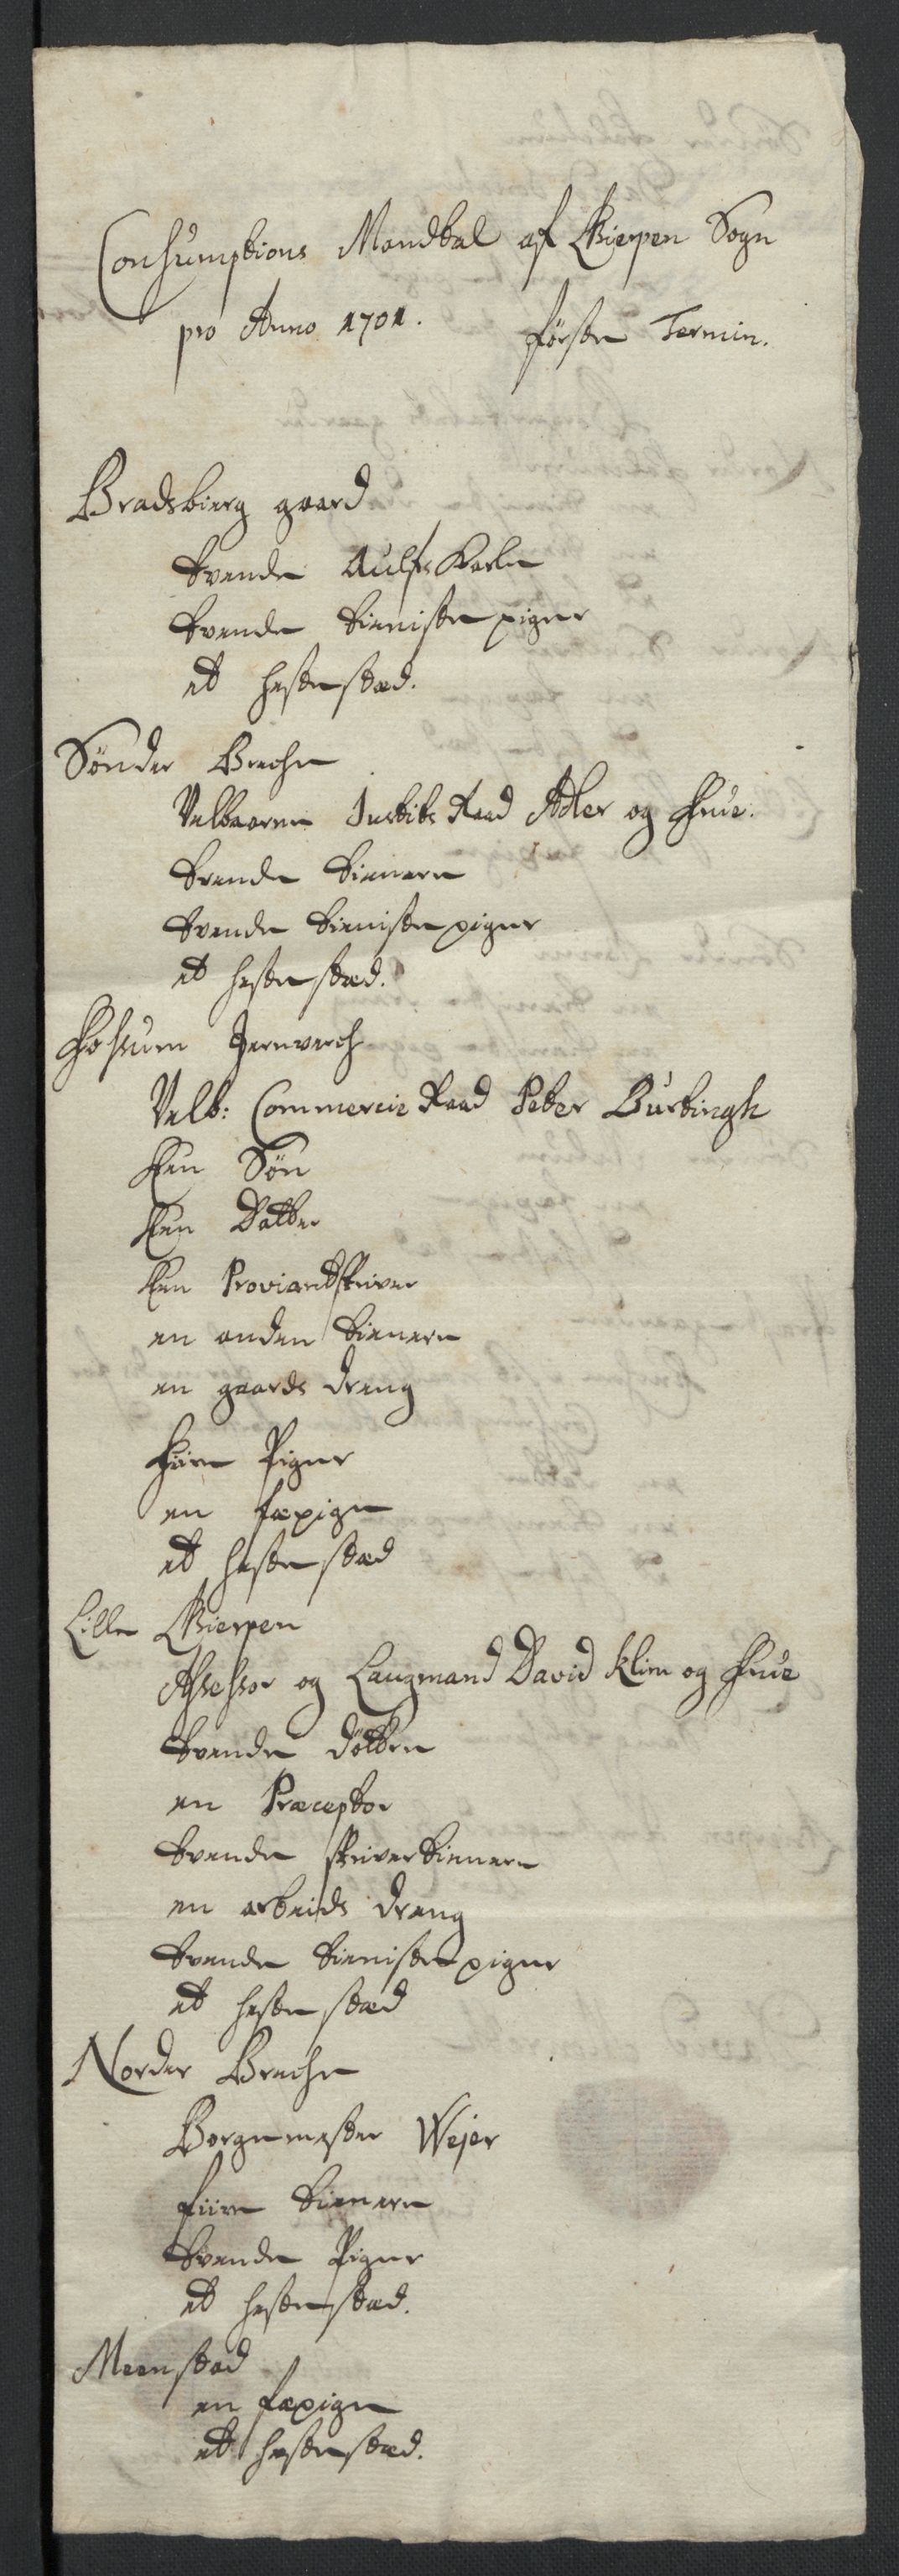 Consumptions Mandtal af Gierpen Sogn
pro Anno 1701. förste Termin.
Bradsbierg gaard
tvende Aulfs Karle
tvende tieniste piger
et hestestæd.
Sönder Breche
Velbaarne Justits Raad Adler og Frue.
trende tienere
tvende tieniste piger
et hestestæd.
Fossum Jernverch
Velb: Commercie Raad Peter Börtingh
Een Sön
Een Datter
Een Proviantskriver
en anden tienere
en gaards dreng
Fiire Piger
en fæpige
et hestestæd
Lille Gierpen
Assessor og Laugmand David Klim og Frue
tvende döttre
en Præceptor
tvende skriver tienere
en arbeids dreng
tvende tieniste piger
et hestestæd
Norder Breche
Borgemester Wejer
fiire tienere
tvende Piger
et hestestæd.
Meenstad
en fæpige
et hestestæd.